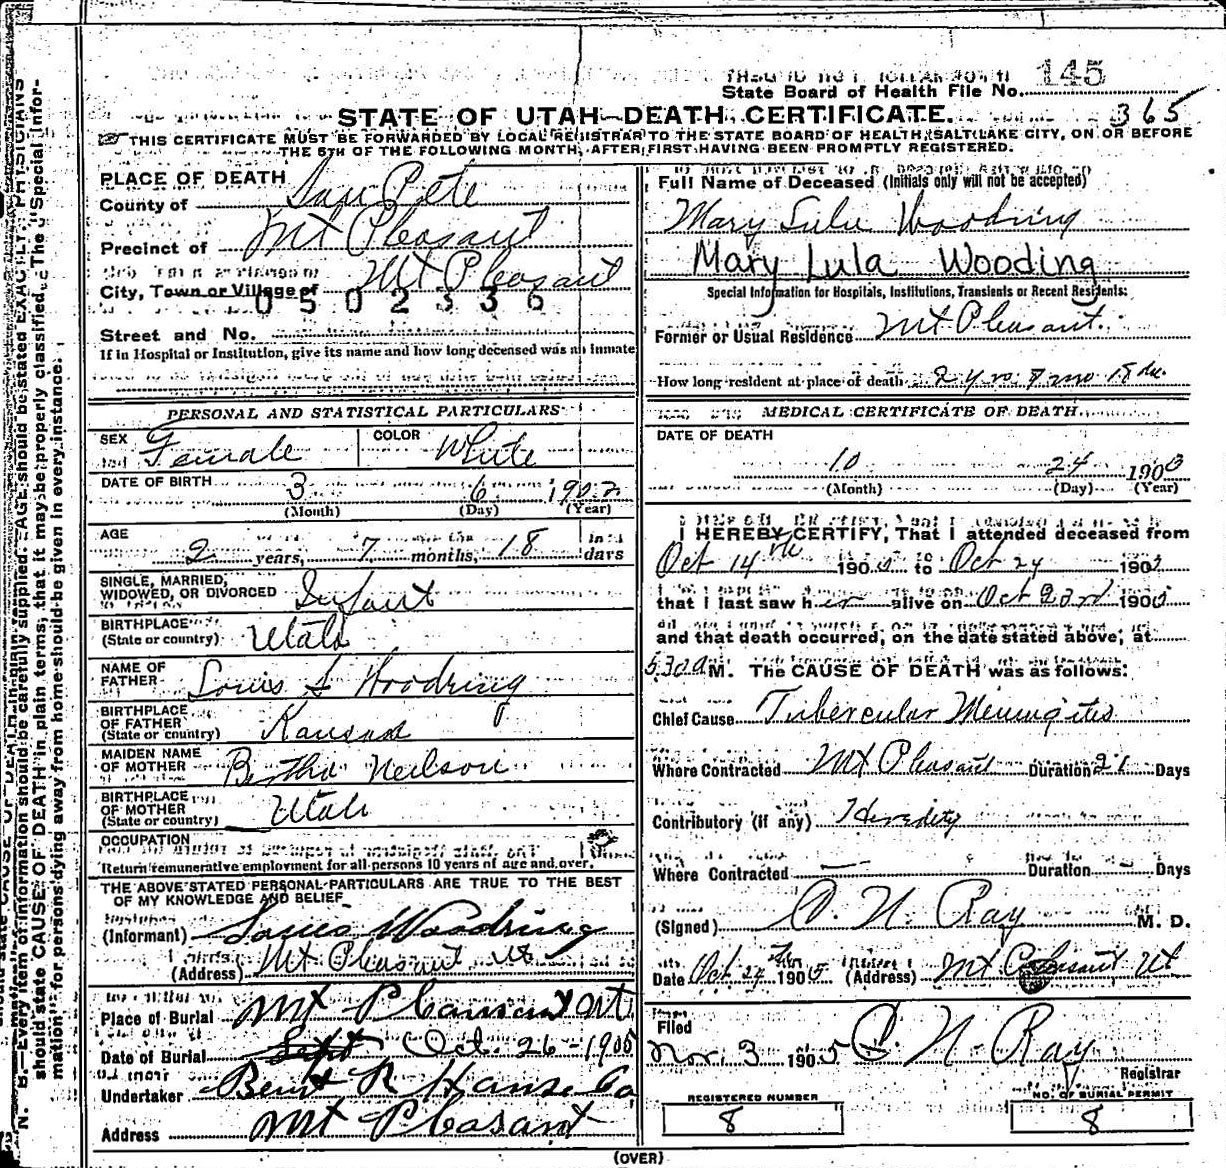 145
State Board of Health File No.
STATE OF UTAH—DEATH CERTIFICATE.
365
THIS CERTIFICATE MUST BE FORWARDED BY LOCAL REGISTRAR TO THE STATE BOARD OF HEALTH, SALT LAKE CITY, ON OR BEFORE
THE 5TH OF THE FOLLOWING MONTH, AFTER FIRST HAVING BEEN PROMPTLY REGISTERED.
PLACE OF DEATH
County of San Pete
Precinct of Mt Pleasant
City, Town or Village of Mt Pleasant
0502336
Street and No.
If in Hospital or Institution, give its name and how long deceased was an inmate
PERSONAL AND STATISTICAL PARTICULARS
SEX Female COLOR White
DATE OF BIRTH 3 6 1902
(Month) (Day) (Year)
AGE 2 years, 7 months, 18 days
SINGLE, MARRIED,
WIDOWED, OR DIVORCED Infant
BIRTHPLACE
(State or country) Utah
NAME OF
FATHER Louis S Woodring
BIRTHPLACE
OF FATHER
(State or country) Kansas
MAIDEN NAME
OF MOTHER Bertha Neilson
BIRTHPLACE
OF MOTHER
(State or country) Utah
OCCUPATION
Return remunerative employment for all persons 10 years of age and over.
THE ABOVE STATED PERSONAL PARTICULARS ARE TRUE TO THE BEST
OF MY KNOWLEDGE AND BELIEF
(Informant) Louis Woodring
(Address) Mt Pleasant Ut
Place of Burial Mt Pleasant Ut
Date of Burial Sept Oct. 26 - 1905
Undertaker Bent R Hanse Co
Address Mt Pleasant
Full Name of Deceased (Initials only will not be accepted)
Mary Lulu Woodring
Mary Lula Wooding
Special Information for Hospitals, Institutions, Transients or Recent Residents:
Former or Usual Residence Mt Pleasant.
How long resident at place of death 2 yrs 7 mo 18 da.
MEDICAL CERTIFICATE OF DEATH
DATE OF DEATH
10 24 1903
(Month) (Day) (Year)
I HEREBY CERTIFY, That I attended deceased from
Oct 14th 1905 to Oct 24 1905
that I last saw her alive on Oct 23rd 1905
and that death occurred, on the date stated above, at
5:30 a M. The CAUSE OF DEATH was as follows:
Chief Cause Tubercular Meningitis
Where Contracted Mt Pleasant Duration 21 Days
Contributory (if any) Heredity
Where Contracted — Duration — Days
(Signed) O. N. Ray M. D.
Date Oct 24th 1905 (Address) Mt Pleasant Ut
Filed
Nov. 3 1905 O. N. Ray
Registrar
REGISTERED NUMBER
8
NO. OF BURIAL PERMIT
8
(OVER)
N. B.—Every item of information should be carefully supplied. AGE should be stated EXACTLY. PHYSICIANS
should state CAUSE OF DEATH in plain terms, that it may be properly classified. The "Special Infor-
mation" for persons dying away from home should be given in every instance.